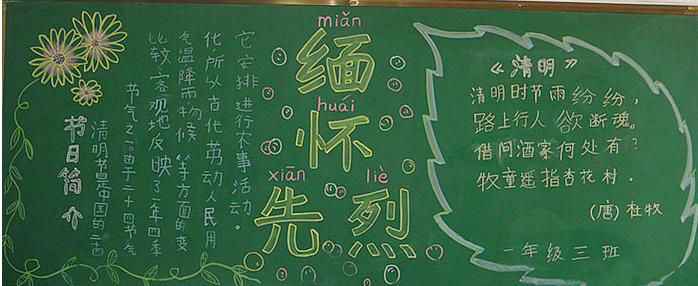 节日简介
清明节是中国的二十四
节气之一。由于二十四节气
比较客观地反映了一年四季
气温降雨物候等方面的变
化所以古代劳动人民用
它安排进行农事活动。
miǎn
缅
huái
怀
xiān liè
先烈
《清明》
清明时节雨纷纷，
路上行人欲断魂。
借问酒家何处有？
牧童遥指杏花村．
（唐）杜牧
一年级三班